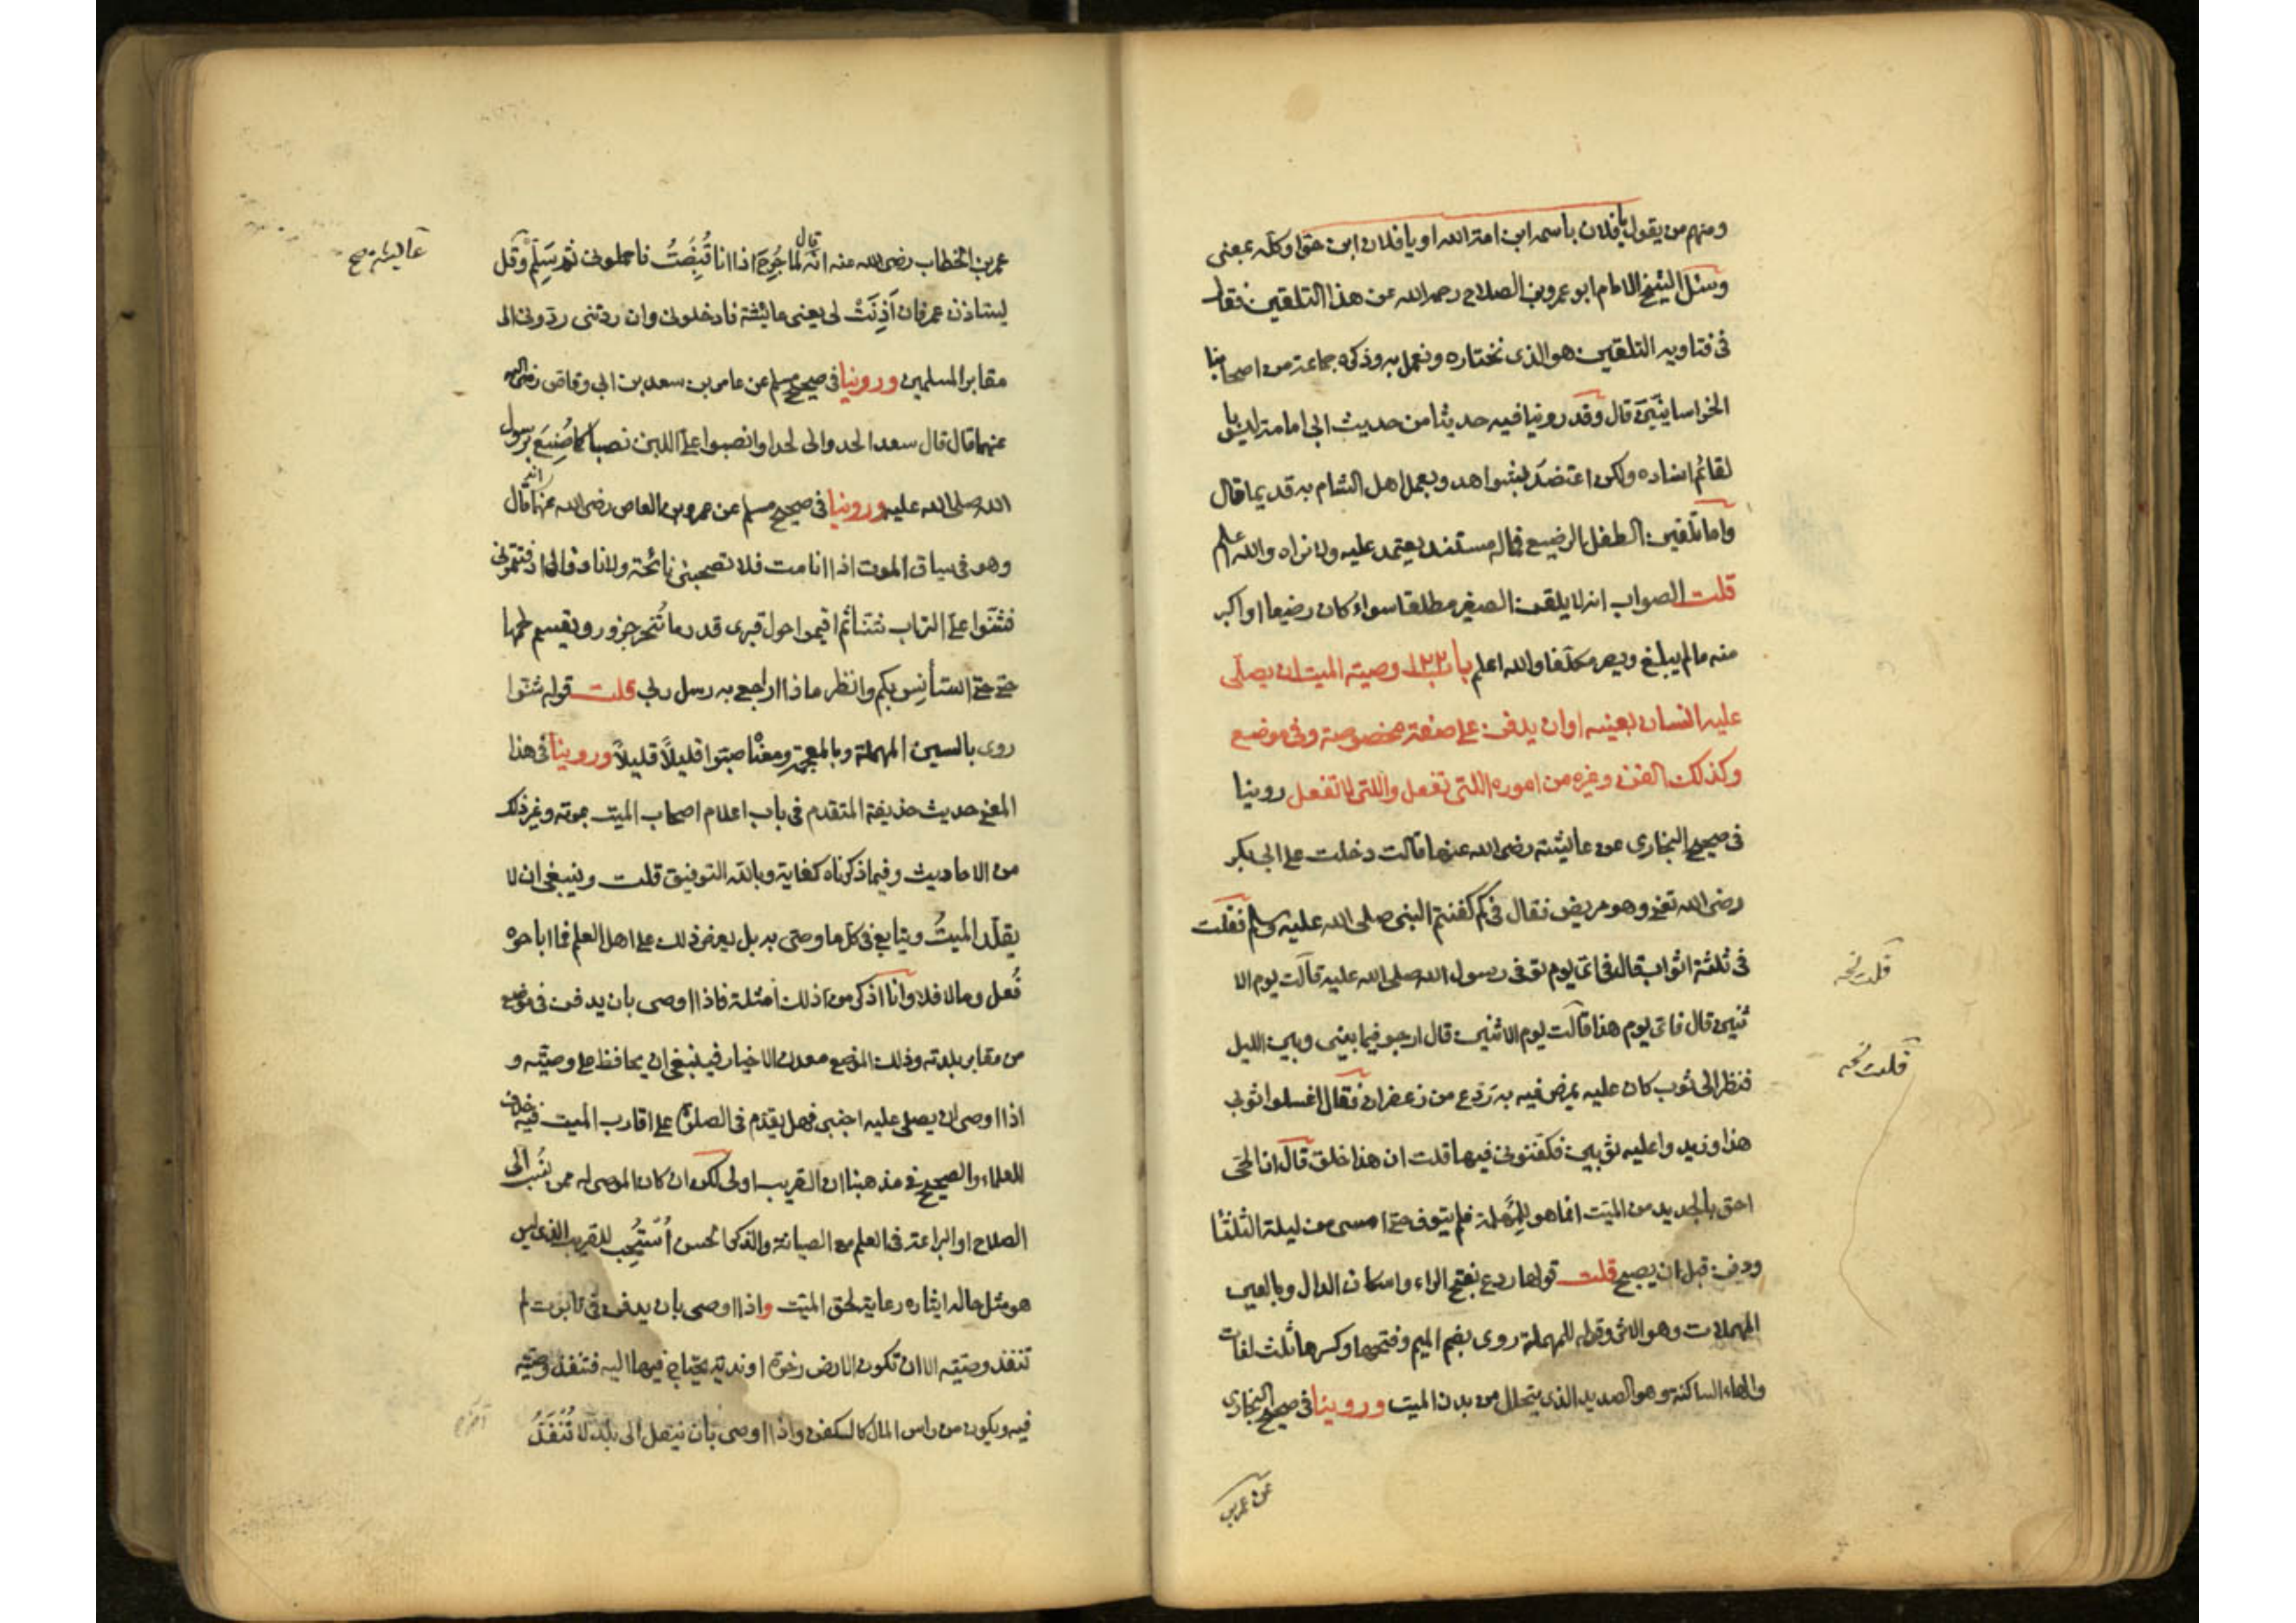 ومنهم من يقول يا فلان باسمه ابن امة الله او يا فلان ابن حوا وكله بمعنى
وسئل الشيخ الامام ابو عمرو بن الصلاح رحمه الله عن هذا التلقين فقال
فى فتاويه التلقين هو الذى نختاره ونعمل به وذكره جماعة من اصحابنا
الخراسانيين قال وقد روينا فيه حديثا من حديث ابى امامة ليس با
لقائم اسناده ولكن اعتضد بشواهد وبعمل اهل الشام به قديما قال
واما تلقين الطفل الرضيع فما له مستند يعتمد عليه ولا نراه والله اعلم
قلت الصواب انه لا يلقن الصغير مطلقا سواء كان رضيعا او اكبر
منه ما لم يبلغ ويصر مكلفا والله اعلم باب ١٢٢ وصية الميت ان يصلى
عليه انسان بعينه او ان يدفن على صفة مخصوصة وفى موضع
وكذلك الكفن وغيره من اموره اللتى تفعل واللتى لا تفعل روينا
فى صحيح البخارى عن عايشة رضى الله عنها قالت دخلت على ابى بكر
رضى الله تعالى وهو مريض فقال فى كم كفنتم النبى صلى الله عليه وسلم فقلت
فى ثلثة اثواب قال فى اى يوم توفى رسول الله صلى الله عليه قالت يوم الا
ثنين قال فاى يوم هذا قالت يوم الاثنين قال ارجو فيما بينى وبين الليل
فنظر الى ثوب كان عليه يمرض فيه به ردع من زعفران فقال اغسلوا ثوبى
هذا وزيدوا عليه ثوبين فكفنونى فيها قلت ان هذا خلق قال ان الحى
احق بالجديد من الميت انما هو للمهلة فلم يتوف حتى امسى من ليلة الثلثا
ودفن قبل ان يصبح قلت قولها ردع بفتح الراء واسكان الدال وبالعين
المهملات وهو الاثر وقوله للمهلة روى بضم الميم وفتحها وكسرها ثلث لغات
والهاء الساكنة وهو الصديد الذى يتحلل من بدن الميت وروينا فى صحيح البخارى
قلت نخه
قلت نخه
عن عمر بن
عمر بن الخطاب رضى الله عنه انه قال لما جرح اذا انا قبضت فاحملونى ثم سلم وقل
يستاذن عمر فان اذنت لى يعنى عايشة فادخلونى وان ردتنى ردونى الى
مقابر المسلمين وروينا فى صحيح مسلم عن عامر بن سعد بن ابى وقاص رضى الله
عنهما قال قال سعد الحدوا لى لحدا وانصبوا على اللبن نصبا كما صنع برسول
الله صلى الله عليه وروينا فى صحيح مسلم عن عمرو بن العاص رضى الله عنهما انه قال
وهو فى سياق الموت اذا انا مت فلا تصحبنى نائحة ولا نار فاذا دفنتمونى
فشنوا على التراب شنا ثم اقيموا حول قبرى قدر ما تنحر جزور ويقسم لحمها
حتى حتى استأنس بكم وانظر ماذا اراجع به رسل ربى قلت قوله شنوا
روى بالسين المهملة وبالمعجمة ومعناه صبوا قليلاً قليلاً وروينا فى هذا
المعنى حديث حذيفة المتقدم فى باب اعلام اصحاب الميت بموته وغير ذلك
من الاحاديث وفيما ذكرناه كفاية وبالله التوفيق قلت وينبغى ان لا
يقلد الميت ويتابع فى كل ما وصى به بل يعرض ذلك على اهل العلم فما اباحوه
فعل وما لا فلا وانا اذكر من ذلك امثلة فاذا اوصى بان يدفن فى موضع
من مقابر بلدته وذلك الموضع معدن الاخيار فينبغى ان يحافظ على وصيته و
اذا اوصى ان يصلى عليه اجنبى فهل يقدم فى الصلوة على اقارب الميت فيه خلاف
للعلماء والصحيح فى مذهبنا ان القريب اولى لكن ان كان الموصى له ممن ينسب الى
الصلاح او البراعة فى العلم مع الصيانة والذكر الحسن استحب للقريب الذى ليس
هو مثل حاله ايثاره رعاية لحق الميت واذا اوصى بان يدفن فى تابوت لم
تنفذ وصيته الا ان تكون الارض رخوة او ندية يحتاج فيها اليه فتنفذ وصيته
فيه ويكون من راس المال كالكفن واذا اوصى بان ينقل الى بلد لا تنفذ
عايشة صح